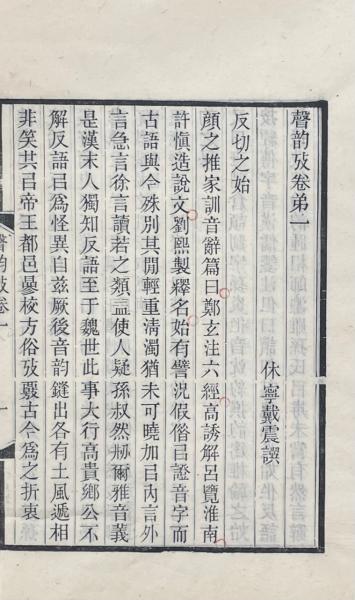 聲韵攷卷弟一
休寧戴震譔
反切之始
顔之推家訓音辭篇曰鄭玄注六經高誘解呂覽淮南
許愼造說文劉熙製釋名始有譬況假俗㠯證音字而
古語與今殊別其閒輕重淸濁猶未可曉加㠯內言外
言急言徐言讀若之類益使人疑孫叔然刱爾雅音義
是漢末人獨知反語至于魏世此事大行高貴鄉公不
解反語㠯爲怪異自兹厥後音韵鏠出各有土風遞相
非笑共㠯帝王都邑蔘校方俗攷覈古今爲之折衷
聲韵攷卷一
一